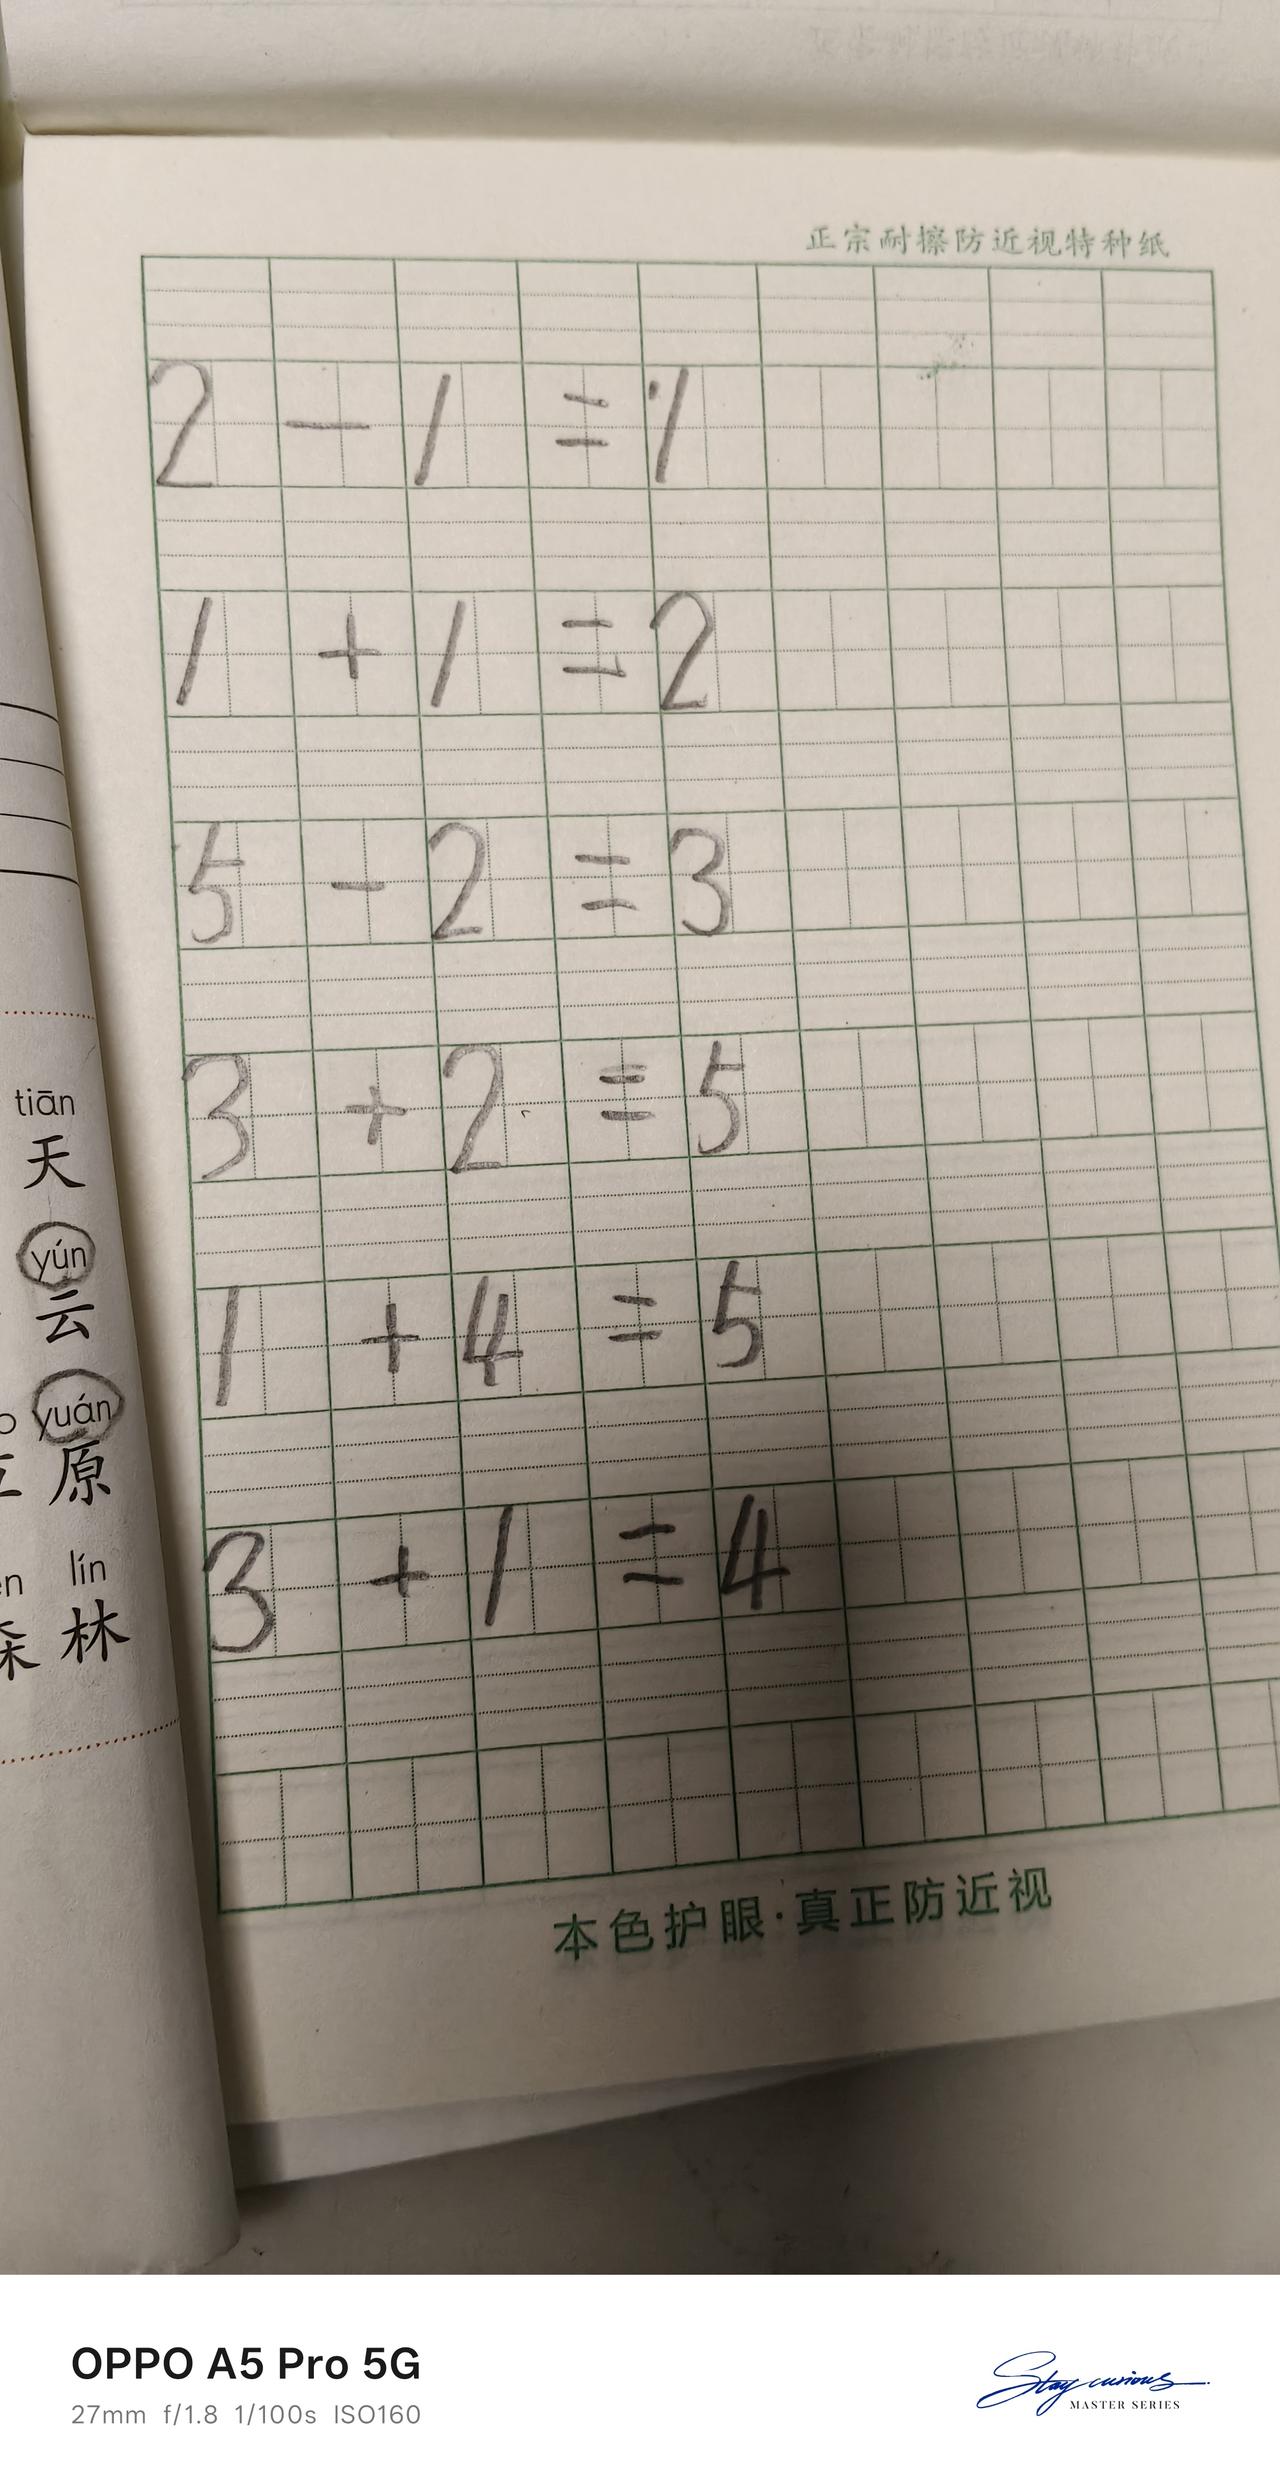 正宗耐擦防近视特种纸
2 - 1 = 1
1 + 1 = 2
5 - 2 = 3
3 + 2 = 5
1 + 4 = 5
3 + 1 = 4
本色护眼·真正防近视
tiān
天
yún
云
yuán
原
lín
林
森
OPPO A5 Pro 5G
27mm f/1.8 1/100s ISO160
Stay curious
MASTER SERIES